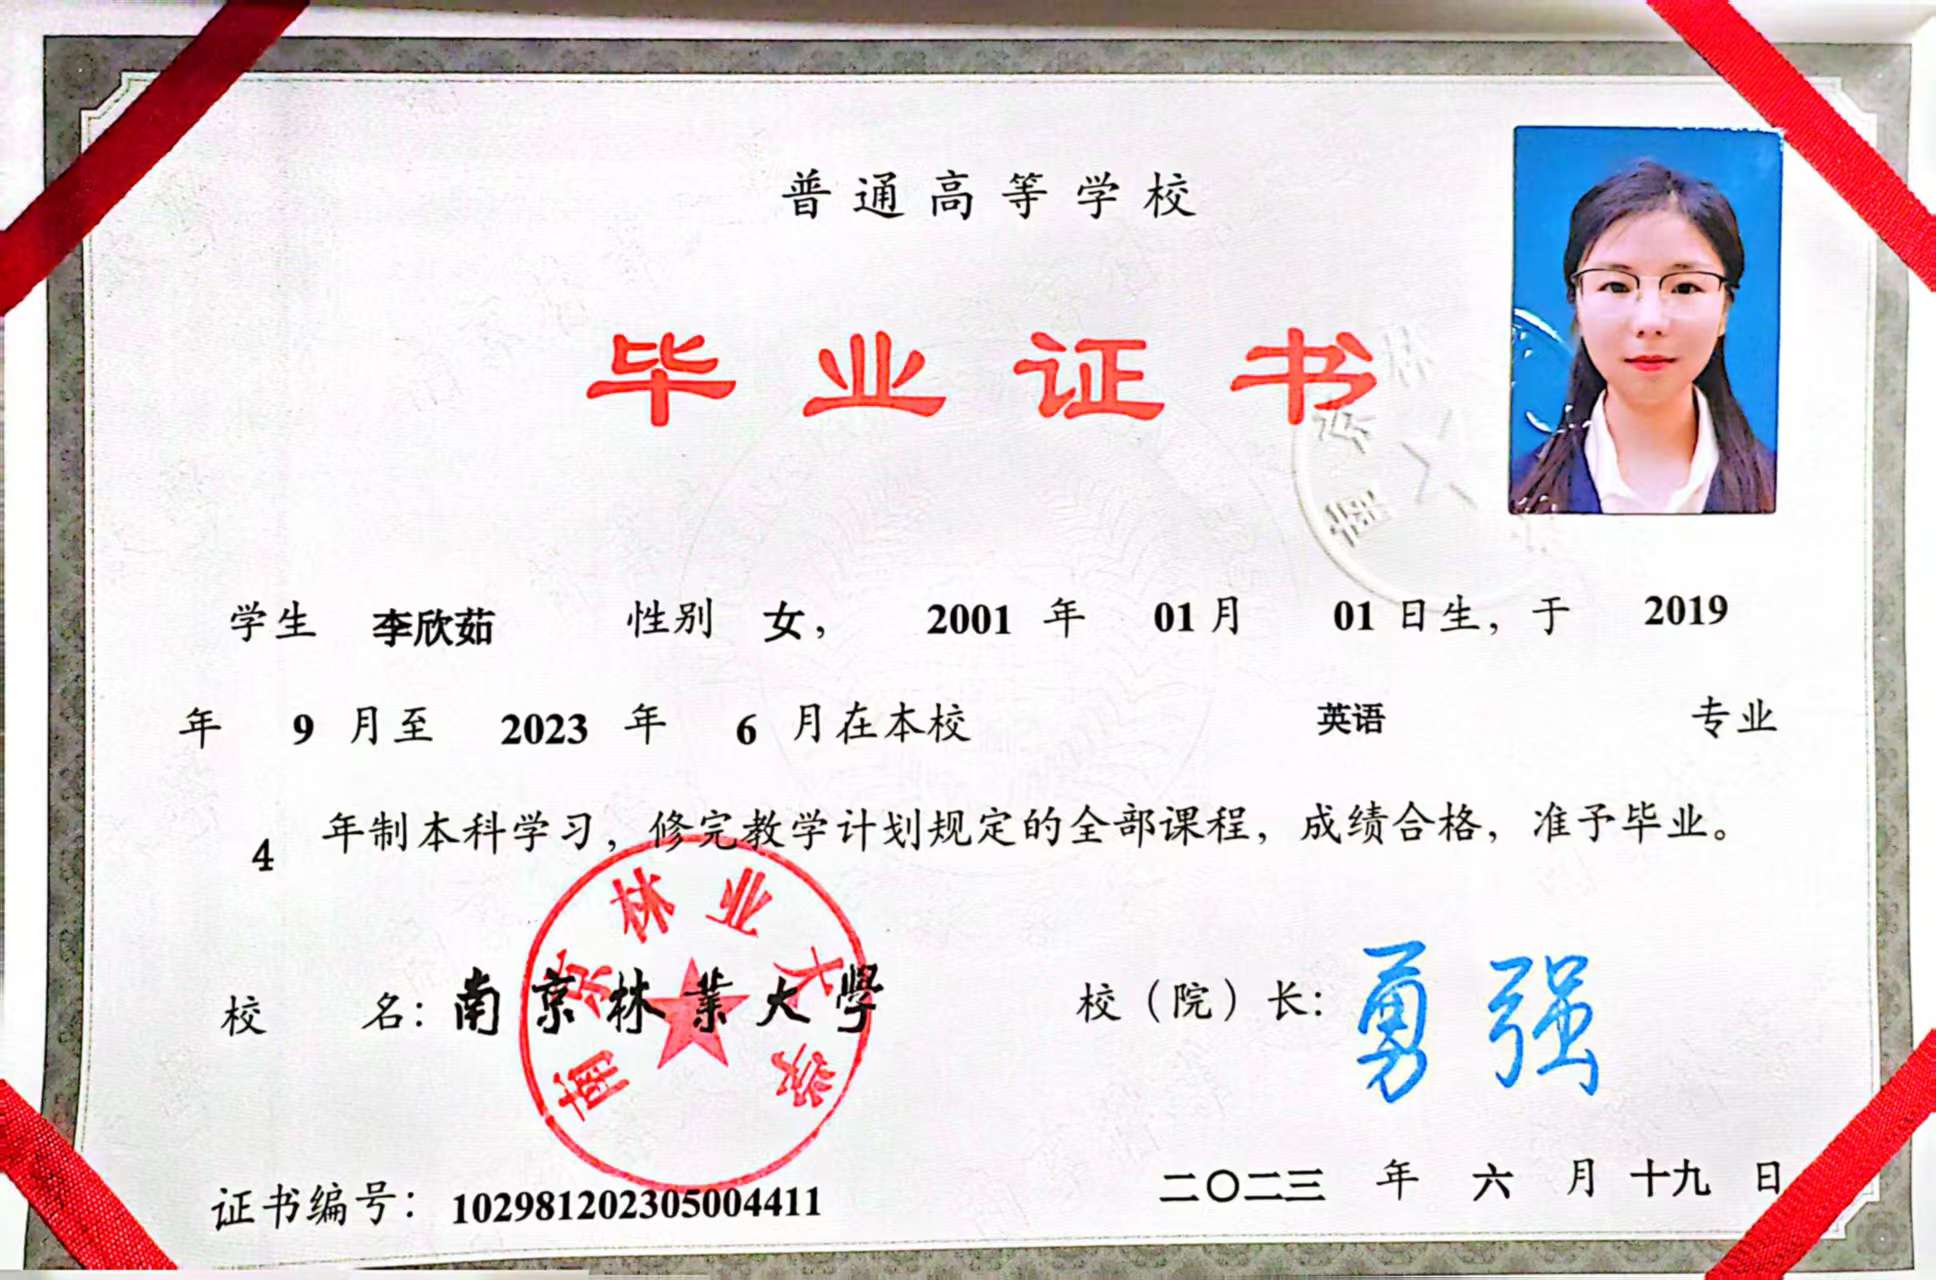 普通高等学校
毕业证书
学生 李欣茹 性别 女， 2001 年 01月 01 日生，于 2019
年 9 月至 2023 年 6 月在本校 英语 专业
4 年制本科学习，修完教学计划规定的全部课程，成绩合格，准予毕业。
校 名：南京林业大学 校（院）长：勇强
南京林业大学
证书编号：102981202305004411 二〇二三 年 六 月 十九 日
南京林